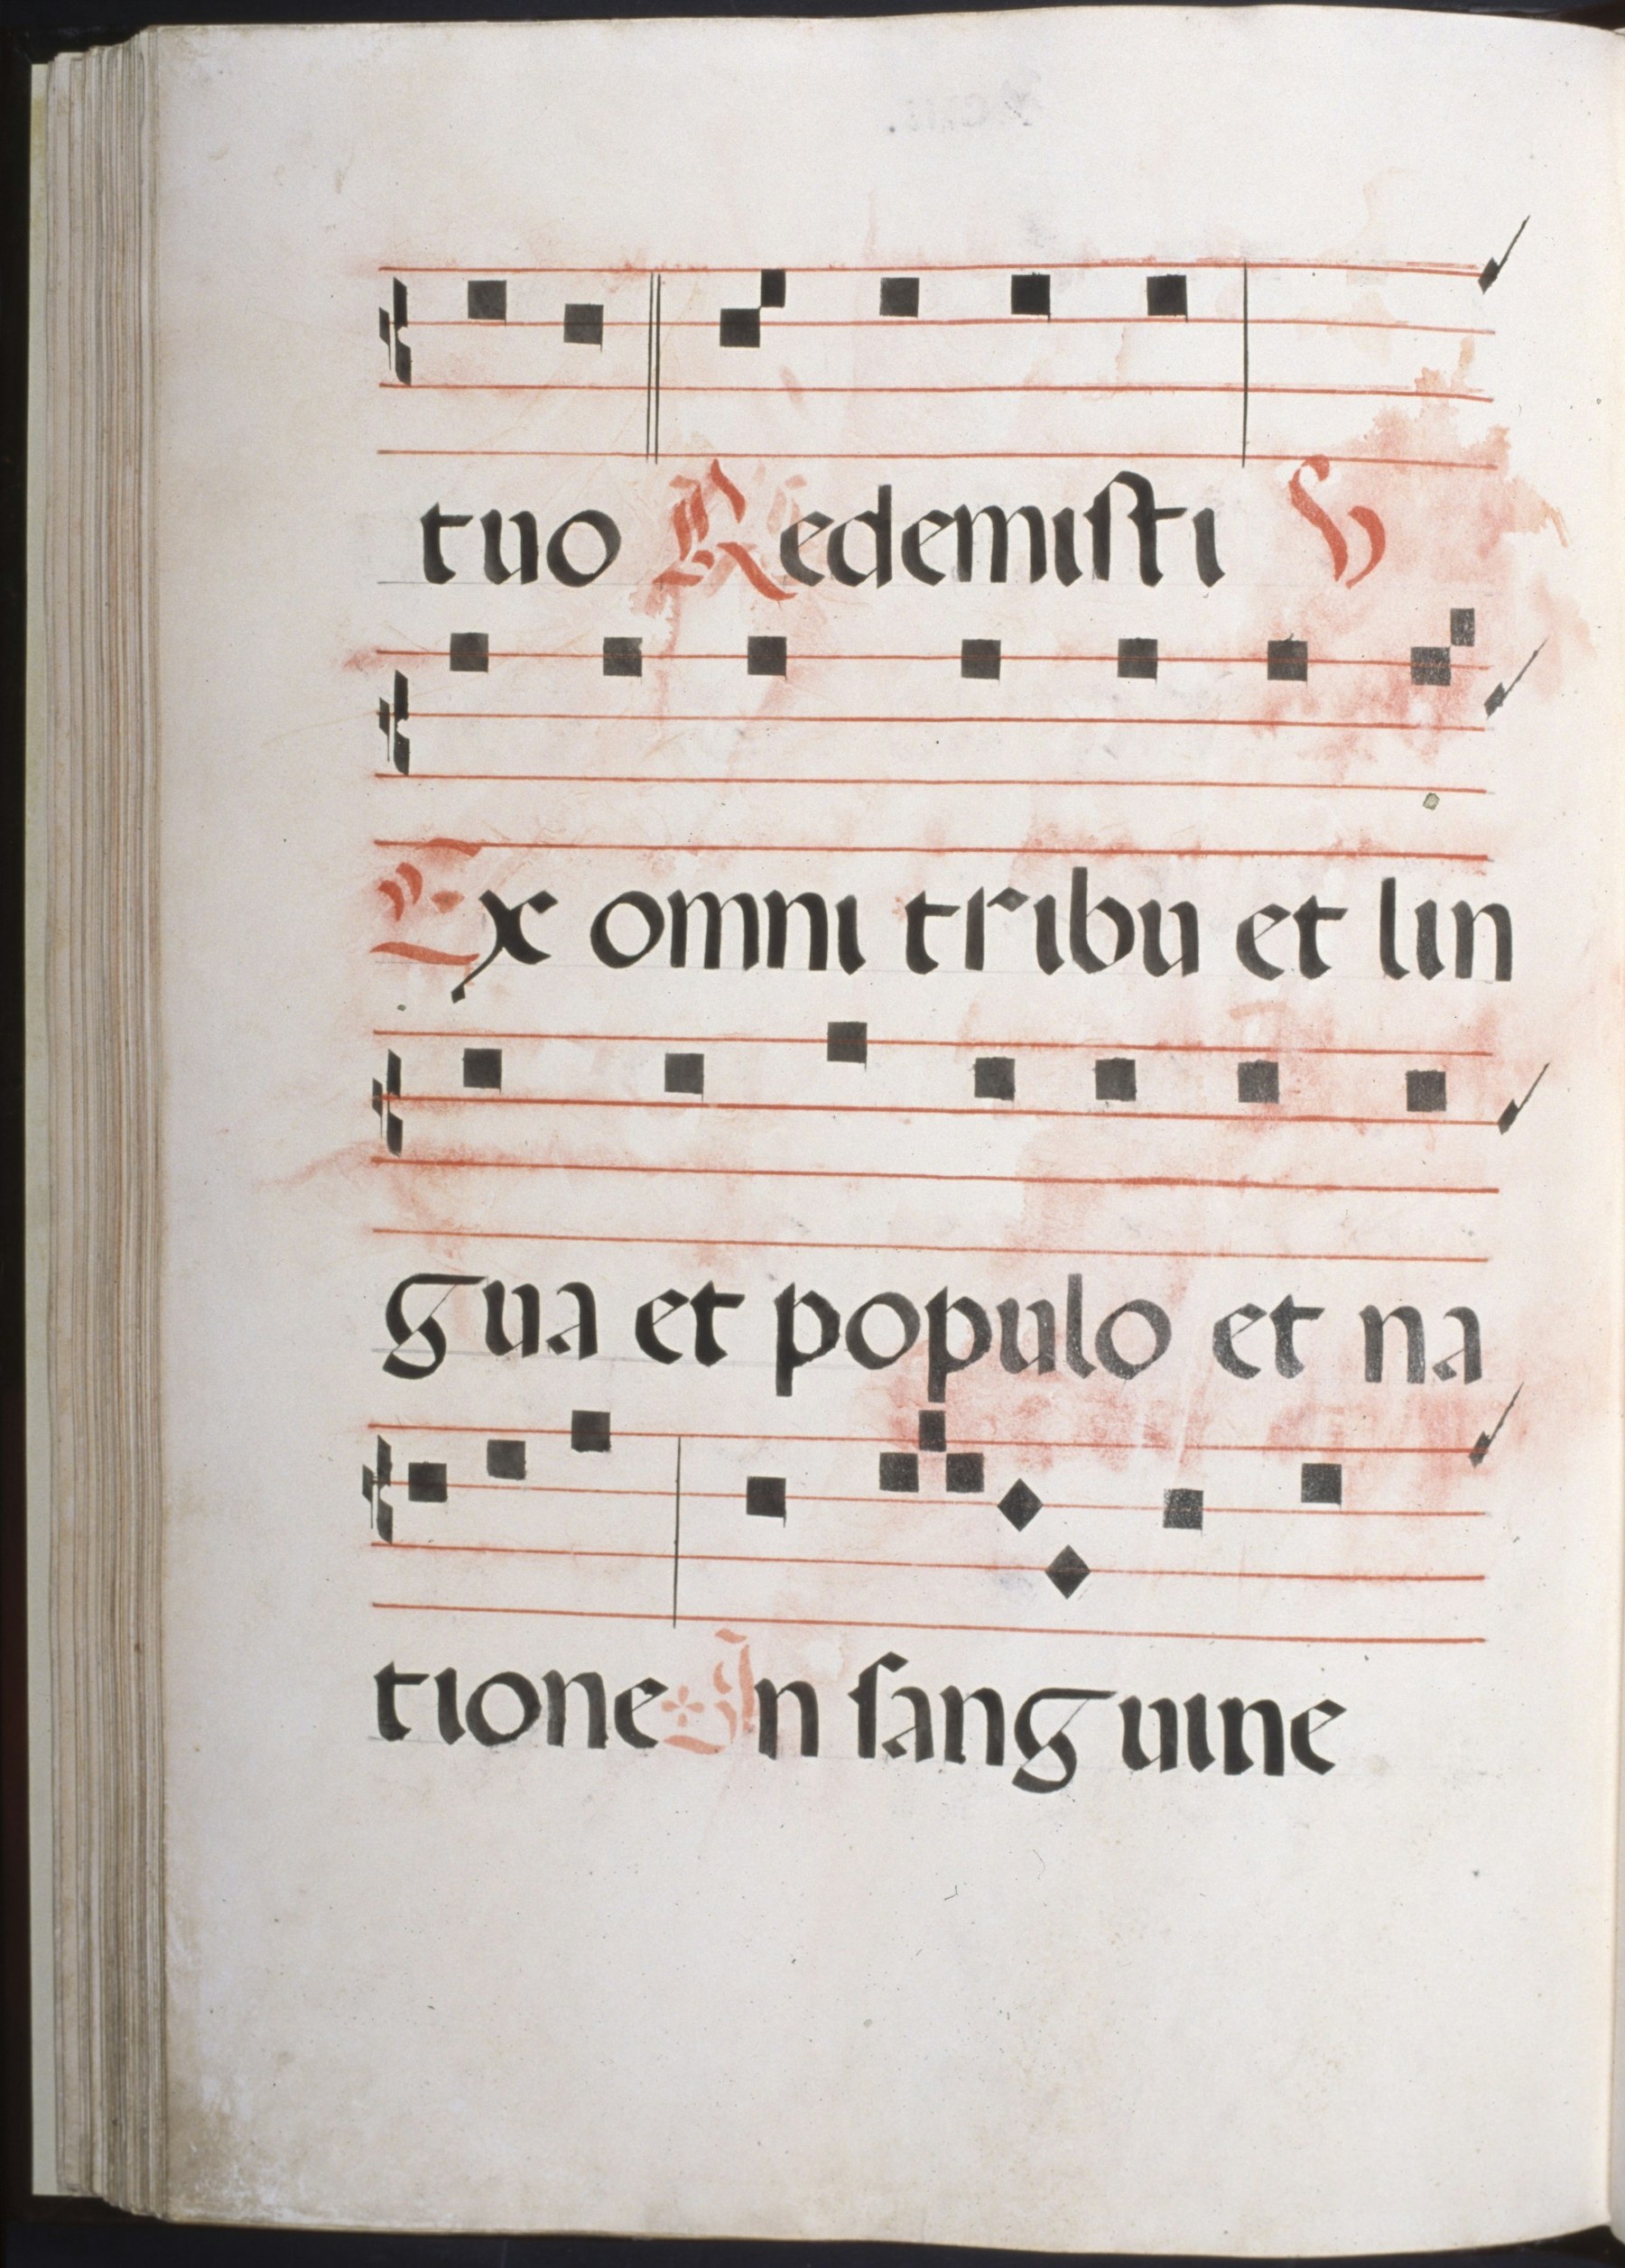 tuo Redemiſti V
Ex omni tribu et lin
gua et populo et na
tione In ſanguine